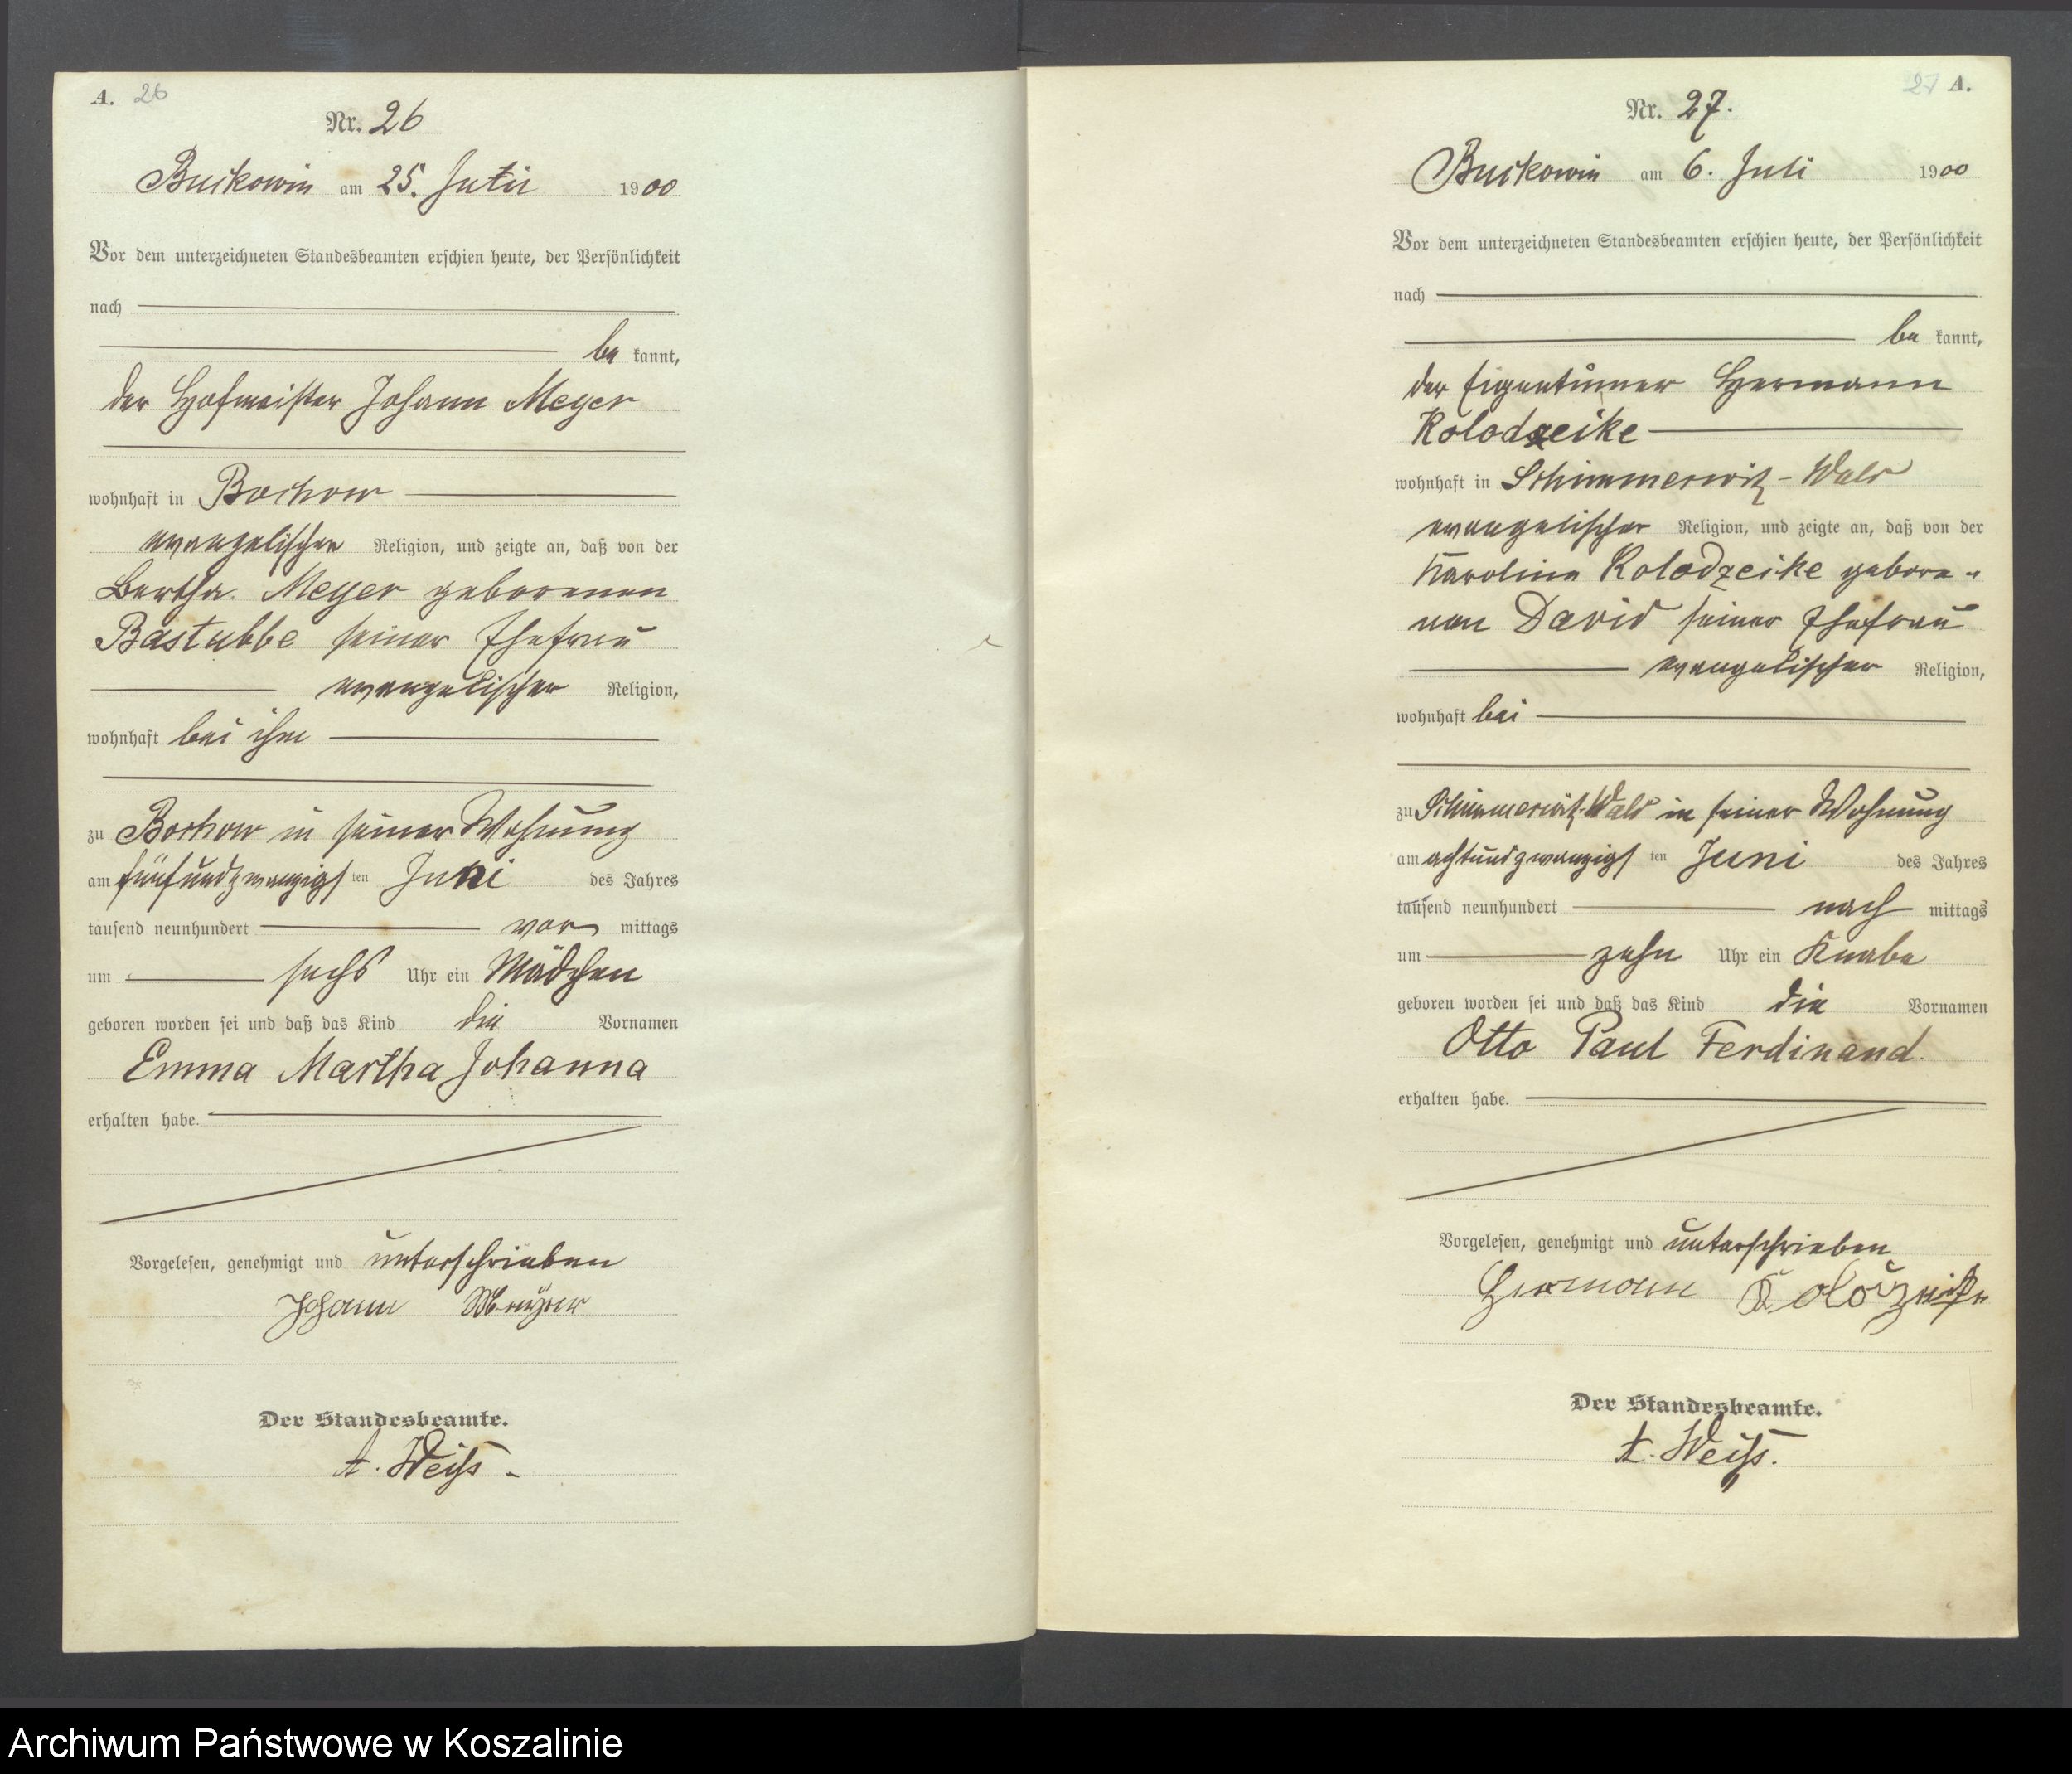 A. 26
Nr. 26
Buckowin am 25. Juni 1900
Vor dem unterzeichneten Standesbeamten erschien heute, der Persönlichkeit
nach
be kannt,
der Hofmeister Johann Meyer
wohnhaft in Bochow
evangelischer Religion, und zeigte an, daß von der
Bertha Meyer geborenen
Bastubbe seiner Ehefrau
evangelischer Religion,
wohnhaft bei ihm
zu Bochow in seiner Wohnung
am fünfundzwanzigsten Juni des Jahres
tausend neunhundert vor mittags
um sechs Uhr ein Mädchen
geboren worden sei und daß das Kind die Vornamen
Emma Martha Johanna
erhalten habe.
Vorgelesen, genehmigt und unterschrieben
Johann Meyer
Der Standesbeamte.
A. Weiß.
27 A.
Nr. 27.
Buckowin am 6. Juli 1900
Vor dem unterzeichneten Standesbeamten erschien heute, der Persönlichkeit
nach
be kannt,
der Eigentümer Hermann
Kolodzeike
wohnhaft in Schimmerwitz-Wald
evangelischer Religion, und zeigte an, daß von der
Karoline Kolodzeike gebore-
nen David seiner Ehefrau
evangelischer Religion,
wohnhaft bei
zu Schimmerwitz-Wald in seiner Wohnung
am achtundzwanzigsten Juni des Jahres
tausend neunhundert nach mittags
um zehn Uhr ein Knabe
geboren worden sei und daß das Kind die Vornamen
Otto Paul Ferdinand.
erhalten habe.
Vorgelesen, genehmigt und unterschrieben
Hermann
Der Standesbeamte.
A. Weiß.
Archiwum Państwowe w Koszalinie